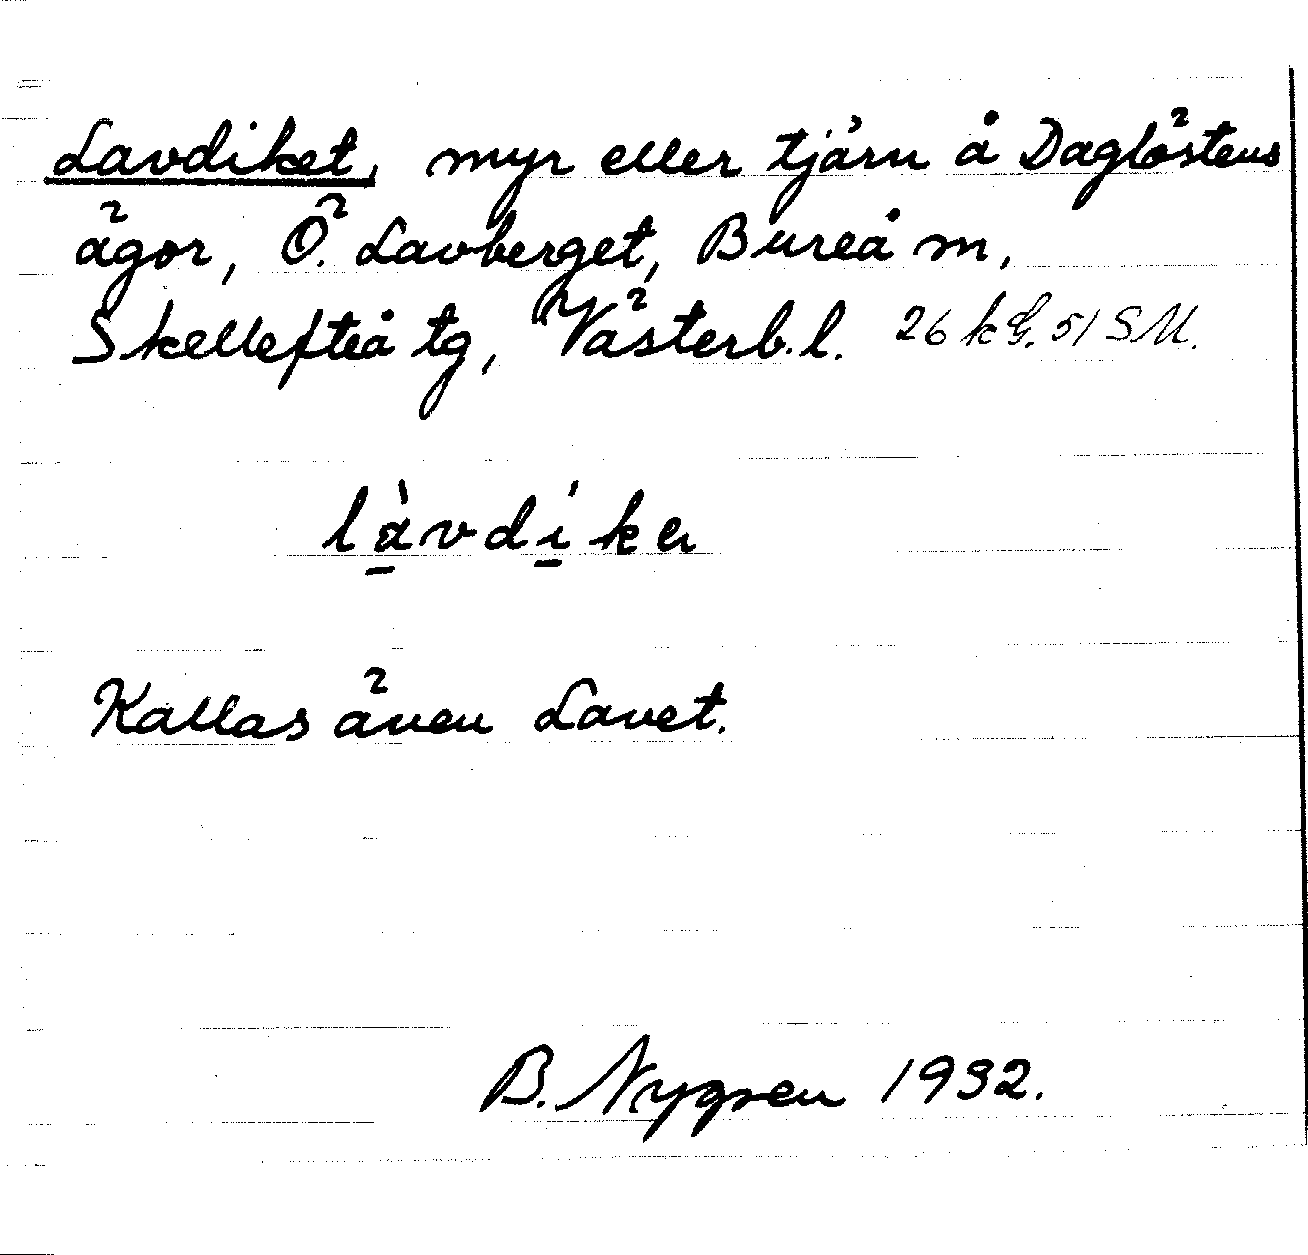 Lavdiket, myr eller tjärn å Daglöstens
ägor, Ö. Lavberget, Bureå m,
Skellefteå tg, Västerb.l. 26 k G. 51 SM.
là̱vdí̱ke
Kallas även Lavet.
B. Nygren 1932.